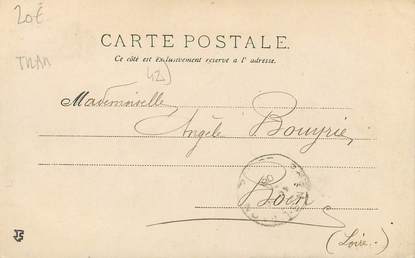 20€
CARTE POSTALE.
Ce côté est exclusivement réservé a l'adresse.
42)
TRAM
Mademoiselle
Angèle Bouyrie,
Boën
(Loire.)